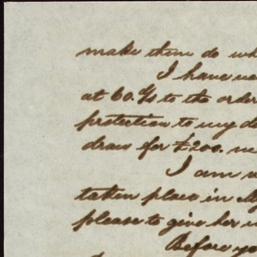 make them do wh
I have
at 60 d/s to the order
protection to my d
draw for £200.
I am
taken place in
please to give her
Before yo